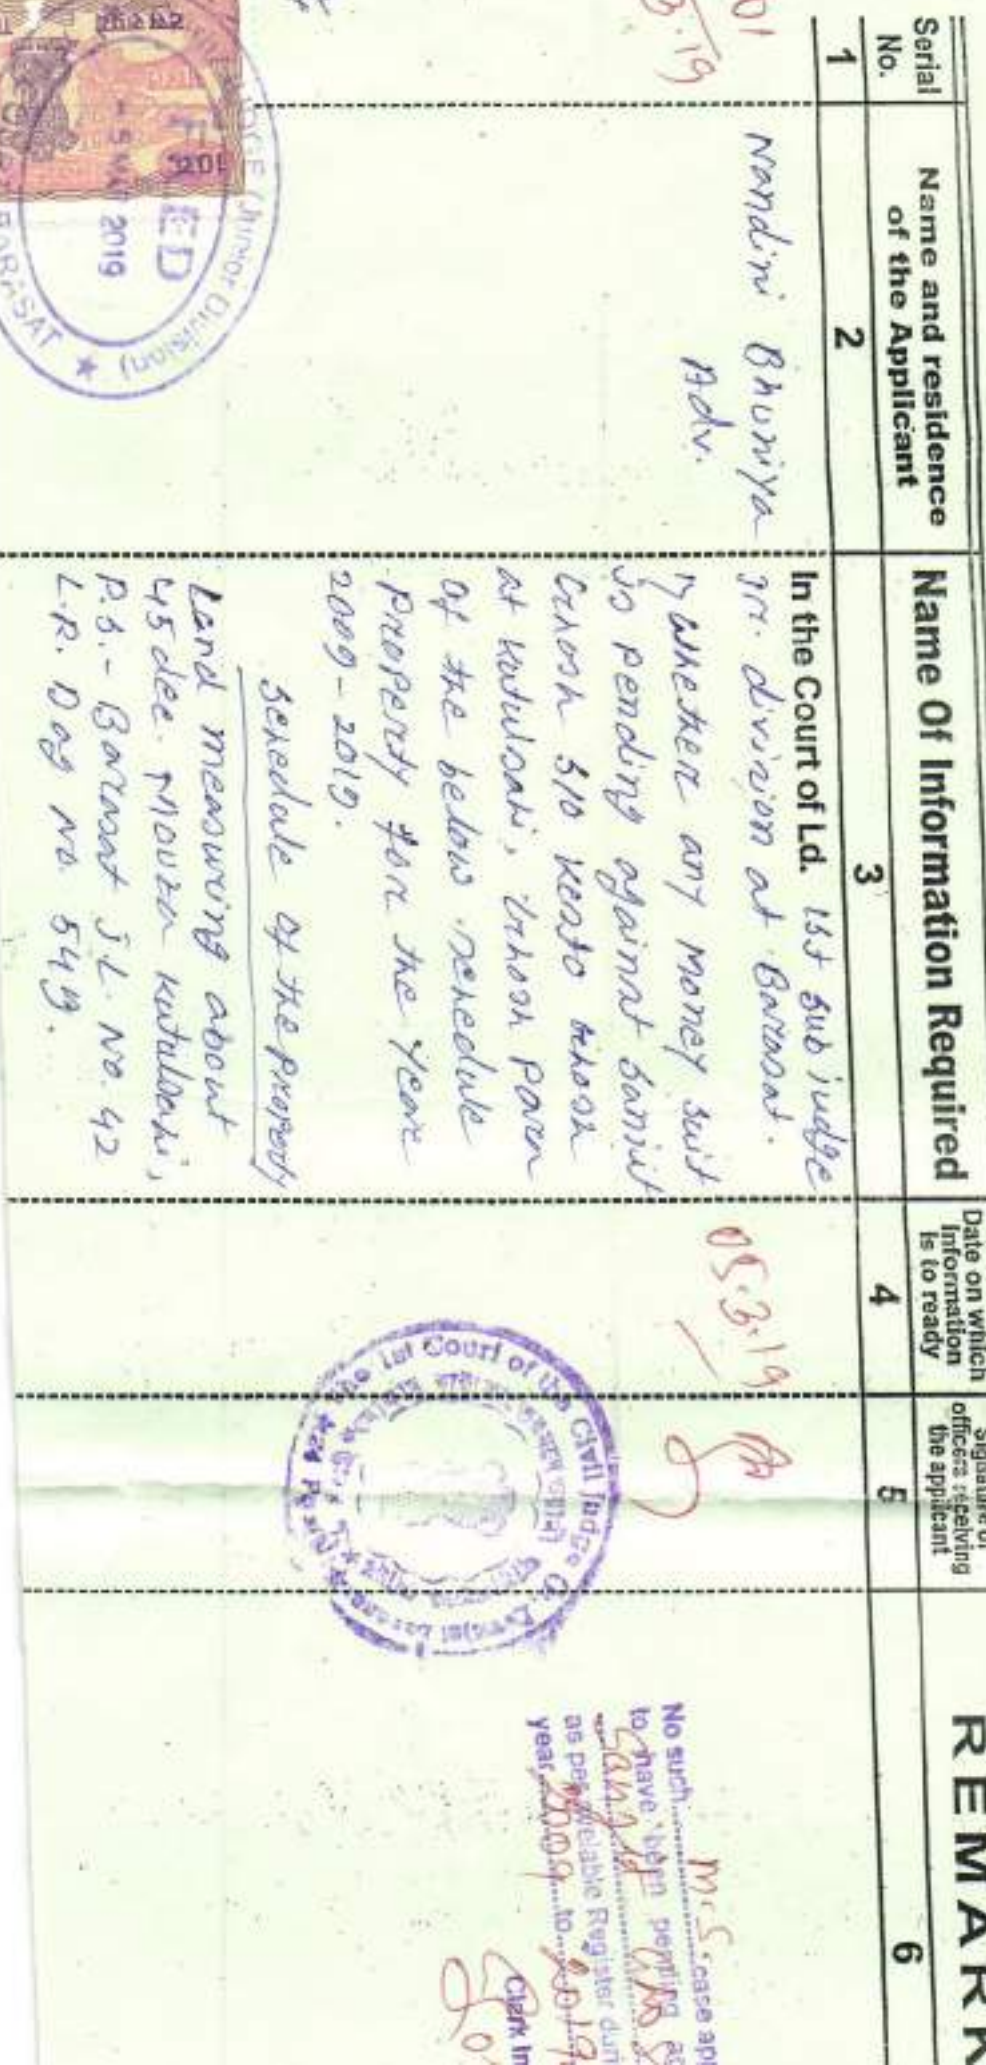 Serial No.
Name and residence of the Applicant
Name Of Information Required
Date on which Information is to ready
Signature of officers receiving the applicant
REMARK
1
2
3
4
5
6
01
3.19
Nandini Bhuniya
Adv.
In the Court of Ld. 1st sub judge
jr. division at Barasat.
whether any money suit
is pending against Samit
Ghosh S/o Kesto Ghosh
at Kutulsahi, Ghosh para
of the below schedule
property for the year
2009-2019.
schedule of the property
Land measuring about
45 dec. Mouza Kutulsahi,
P.S.- Barasat J.L. No. 42
L.R. Dag No 549.
05.3.19
No such M.S. case app
to have been pending ag
as per available Register duri
year 2009 to 2019
Clerk In
(Junior Division)
FILED
- 5 MAR 2019
BARASAT ★
1st Court of the Civil Judge